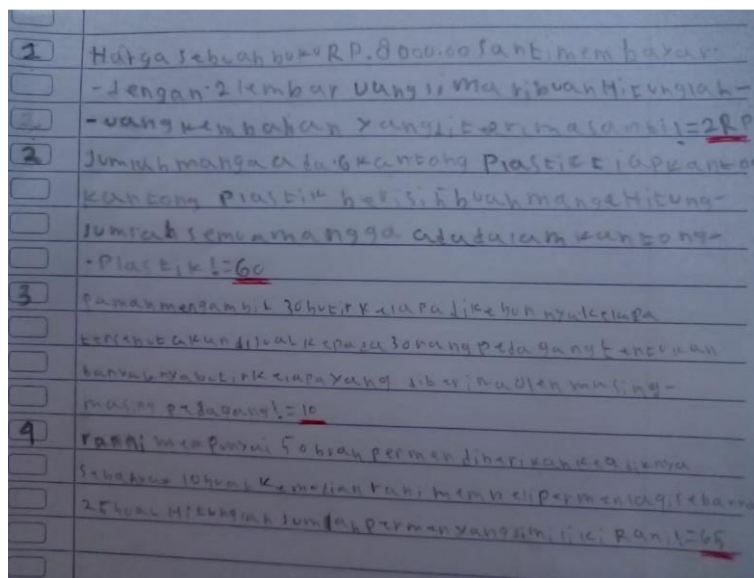 1 Harga sebuah buku RP. 8000.00 santi membayar-
-dengan 2 lembar uang lima ribuan Hitunglah-
-uang kembalian yang diterima santi!=2RP
2 Jumlah manga ada 6 kantong Plastik tiap
kantong Plastik berisi buah manga Hitung-
Jumlah semua mangga ada dalam kantong-
-Plastik!=60
3 Paman mengambil 30 butir kelapa dikebunnya kelapa
tersebut akan dijual kepada 3 orang pedagang tentukan
banyaknya butir kelapa yang diterima oleh masing-
masing pedagang!=10
4 ranni mempunyai 50 buah permen diberikan keadiknya
sebanyak 10 buah kemudian rani membeli permen lagi
25 buah Hitunglah Jumlah permen yang dimiliki Rani!=65